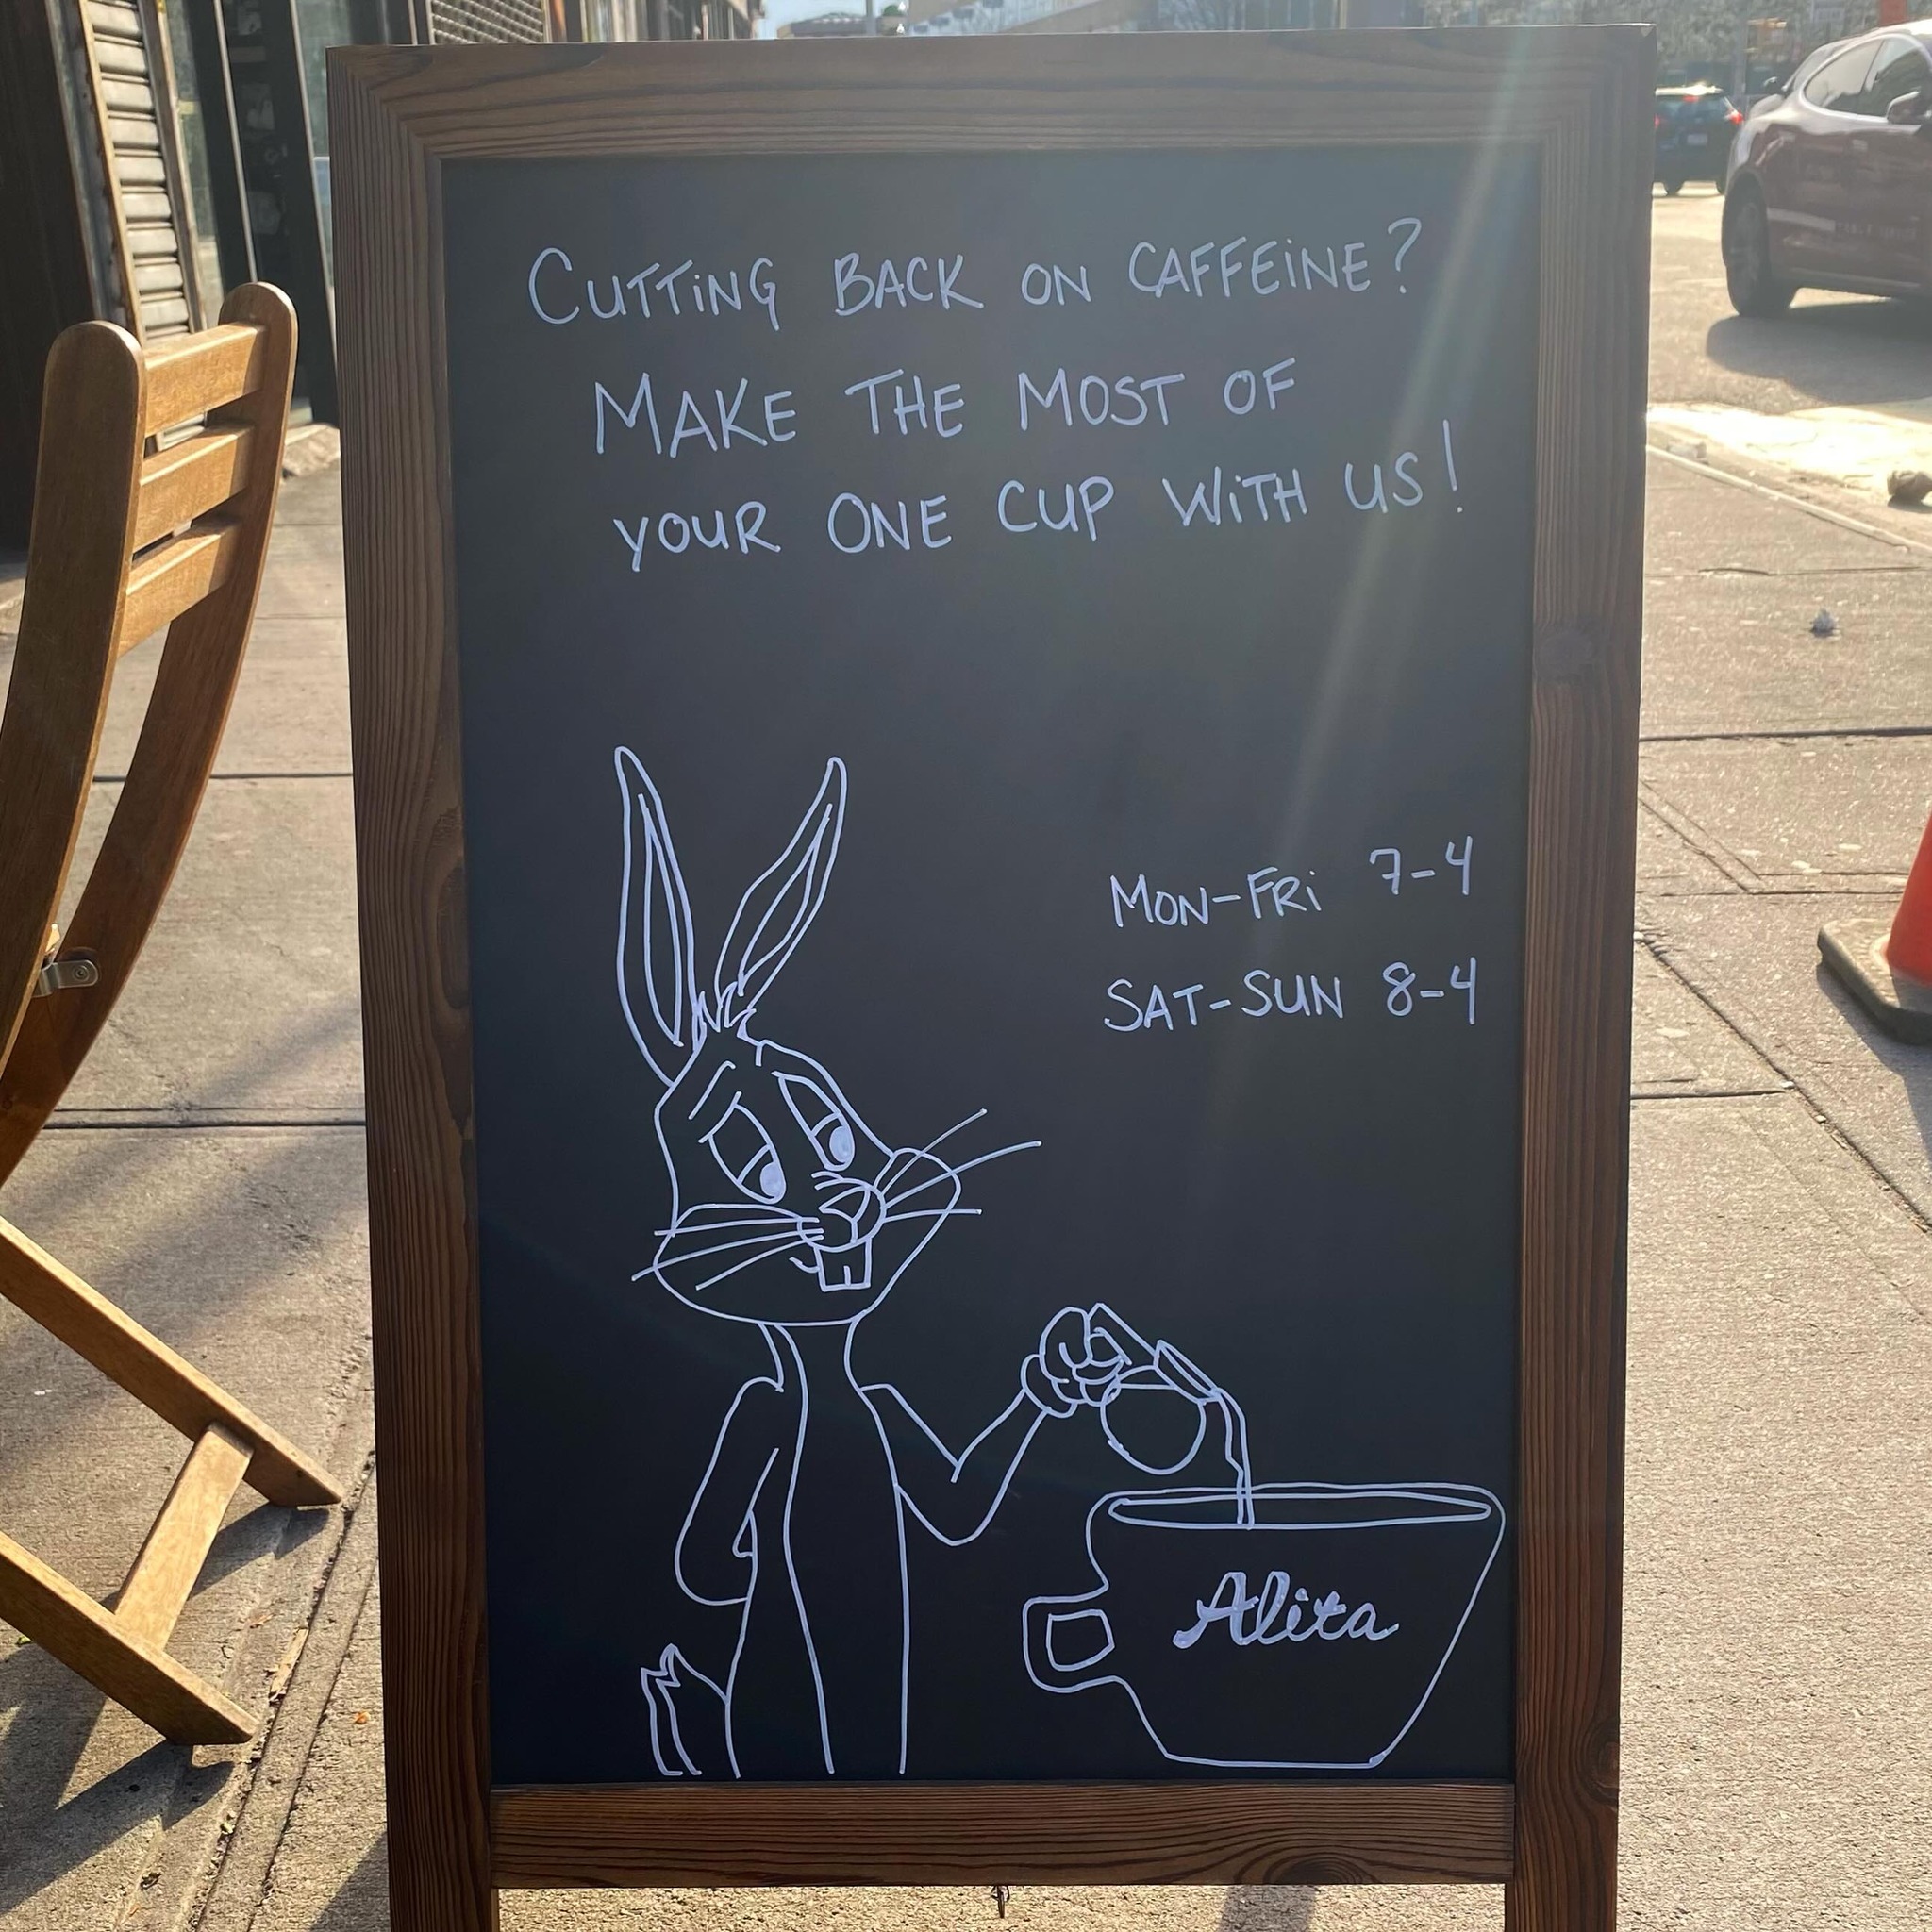 CUTTiNG BACK ON CAFFEiNE?
MAKE THE MOST OF
YOUR ONE CUP WiTH US!
MON-FRi 7-4
SAT-SUN 8-4
Alita